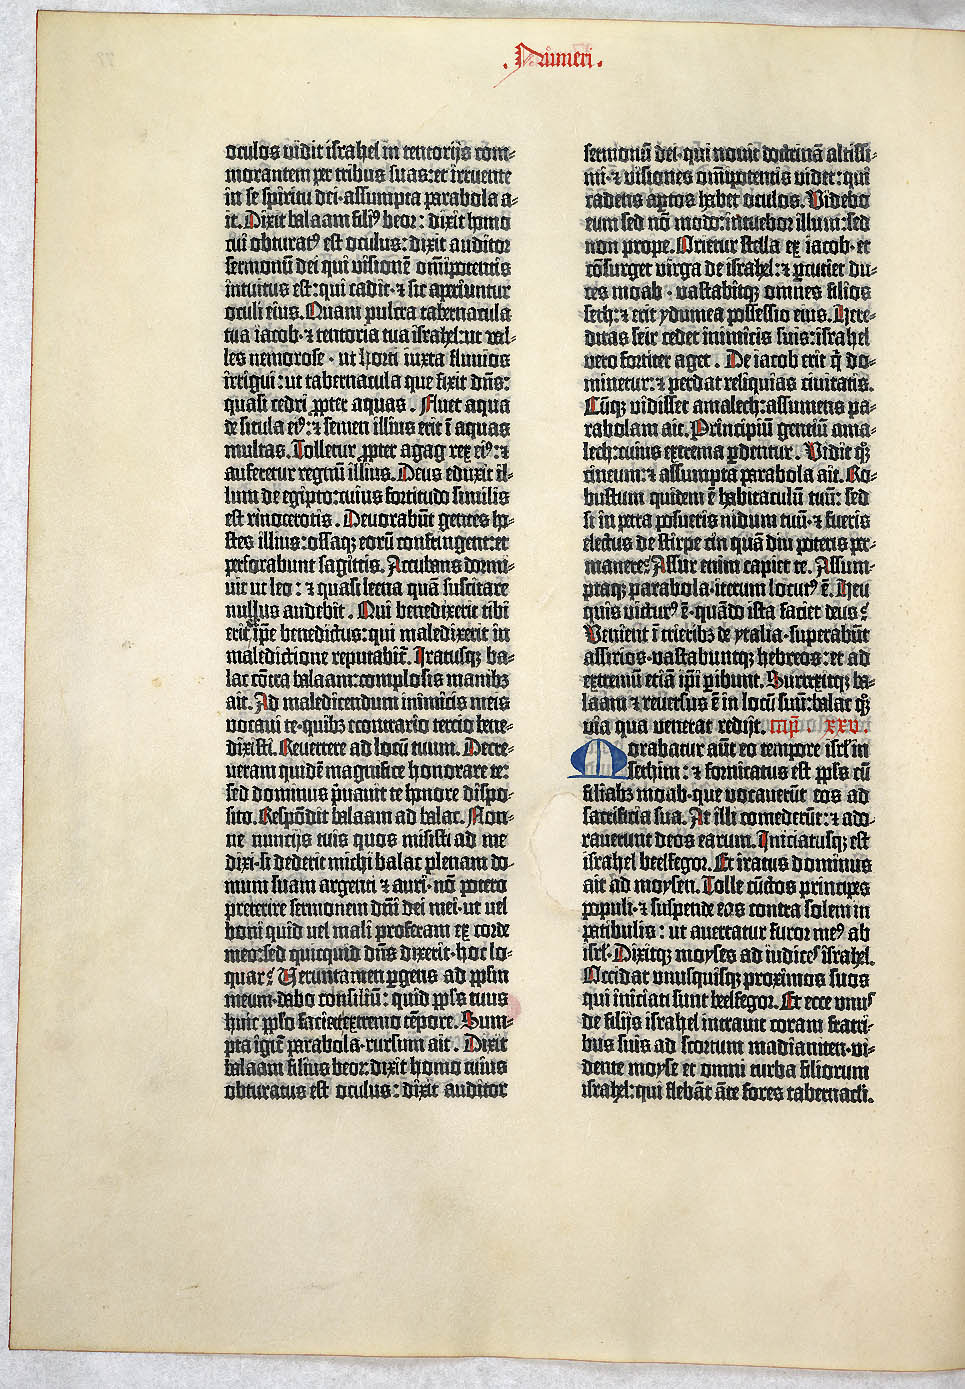 . Nūmeri .
oculos vidit israhel in tentorijs com-
morantem per tribus suas: et irruente
in se spiritu dei· assumpta parabola a-
it. Dixit balaam filiꝰ beor: dixit homo
cui obturatꝰ est oculus: dixit auditor
sermonū dei qui visionē oīpotentis
intuitus est: qui cadit· ⁊ sic aperiuntur
oculi eius. Quam pulcra tabernacula
tua iacob· ⁊ tentoria tua israhel: ut val-
les nemorose· ut horti iuxta fluuios
irrigui: ut tabernacula que fixit dn̄s:
quasi cedri ꝓpter aquas. Fluet aqua
de situla eiꝰ: ⁊ semen illius erit ī aquas
multas. Tolletur ꝓpter agag rex eiꝰ: ⁊
auferetur regnū illius. Deus eduxit il-
lum de egipto: cuius fortitudo similis
est rinocerotis. Deuorabūt gentes ho-
stes illius: ossaqꝫ eorū confringent: et
perforabunt sagittis. Accubans dormi-
uit ut leo: ⁊ quasi leena quā suscitare
nullus audebit. Qui benedixerit tibi
erit ip̄e benedictus: qui maledixerit in
maledictione reputabit̄. Iratusqꝫ ba-
lac cōtra balaam: complosis manibꝫ
ait. Ad maledicendum inimicis meis
vocaui te· quibꝫ econtrario tercio bene-
dixisti. Reuertere ad locū tuum. Decre-
ueram quidē magnifice honorare te:
sed dominus p̄uauit te honore dispo-
sito. Respōdit balaam ad balac. Non-
ne nuncijs tuis quos misisti ad me
dixi· si dederit michi balac plenam do-
mum suam argenti ⁊ auri· nō potero
preterire sermonem dn̄i dei mei· ut uel
boni quid uel mali proferam ex corde
meo: sed quicquid dn̄s dixerit· hoc lo-
quar? Veruntamen ꝑgens ad pp̄lm
meum· dabo consiliū: quid pp̄ls tuus
huic pp̄lo faciat extremo tēpore. Sum-
pta igit̄ parabola· rursum ait. Dixit
balaam filius beor: dixit homo cuius
obturatus est oculus: dixit auditor
sermonū dei· qui nouit doctrinā altissi-
mi· ⁊ visiones om̄ipotentis videt: qui
cadens aꝑtos habet oculos. Videbo
eum sed nō modo: intuebor illum: sed
non prope. Orietur stella ex iacob· et
cōsurget virga de israhel: ⁊ ꝑcutiet du-
ces moab· vastabitqꝫ omnes filios
seth: ⁊ erit ydumea possessio eius. Here-
ditas seir cedet inimicis suis: israhel
vero fortiter aget. De iacob erit q̄ do-
minetur: ⁊ perdat reliquias ciuitatis.
Cūqꝫ vidisset amalech: assumens pa-
rabolam ait. Principiū gentiū ama-
lech: cuius extrema ꝑdentur. Vidit qꝫ
cineum: ⁊ assumpta parabola ait. Ro-
bustum quidem ē habitaculū tuū: sed
si in petra posueris nidum tuū· ⁊ fueris
electus de stirpe cin quā diu poteris per-
manere? Assur enim capiet te. Assum-
ptaqꝫ parabola· iterum locutꝰ ē. Heu
quis victurꝰ ē· quādo ista faciet deus?
Venient ī trieribꝫ de ytalia· superabūt
assirios· vastabuntqꝫ hebreos: et ad
extremū etiā ip̄i ꝑibunt. Surrexitqꝫ ba-
laam ⁊ reuersus ē in locū suū: balac qꝫ
via qua venerat redijt. cap̄. xxv.
Morabatur aūt eo tempore isrl̄ in
sethim: ⁊ fornicatus est pp̄ls cū
filiabꝫ moab· que vocauerūt eos ad
sacrificia sua. At illi comederūt: ⁊ ado-
rauerunt deos earum. Iniciatusqꝫ est
israhel beelfegor. Et iratus dominus
ait ad moysen. Tolle cūctos principes
populi· ⁊ suspende eos contra solem in
patibulis: ut auertatur furor meꝰ ab
isrl̄. Dixitqꝫ moyses ad iudices israhel.
Occidat vnusquisqꝫ proximos suos
qui iniciati sunt beelfegor. Et ecce vnus
de filijs israhel intrauit coram fratri-
bus suis ad scortum madianiten· vi-
dente moyse et omni turba filiorum
israhel: qui flebāt āte fores tabernacl̄i.